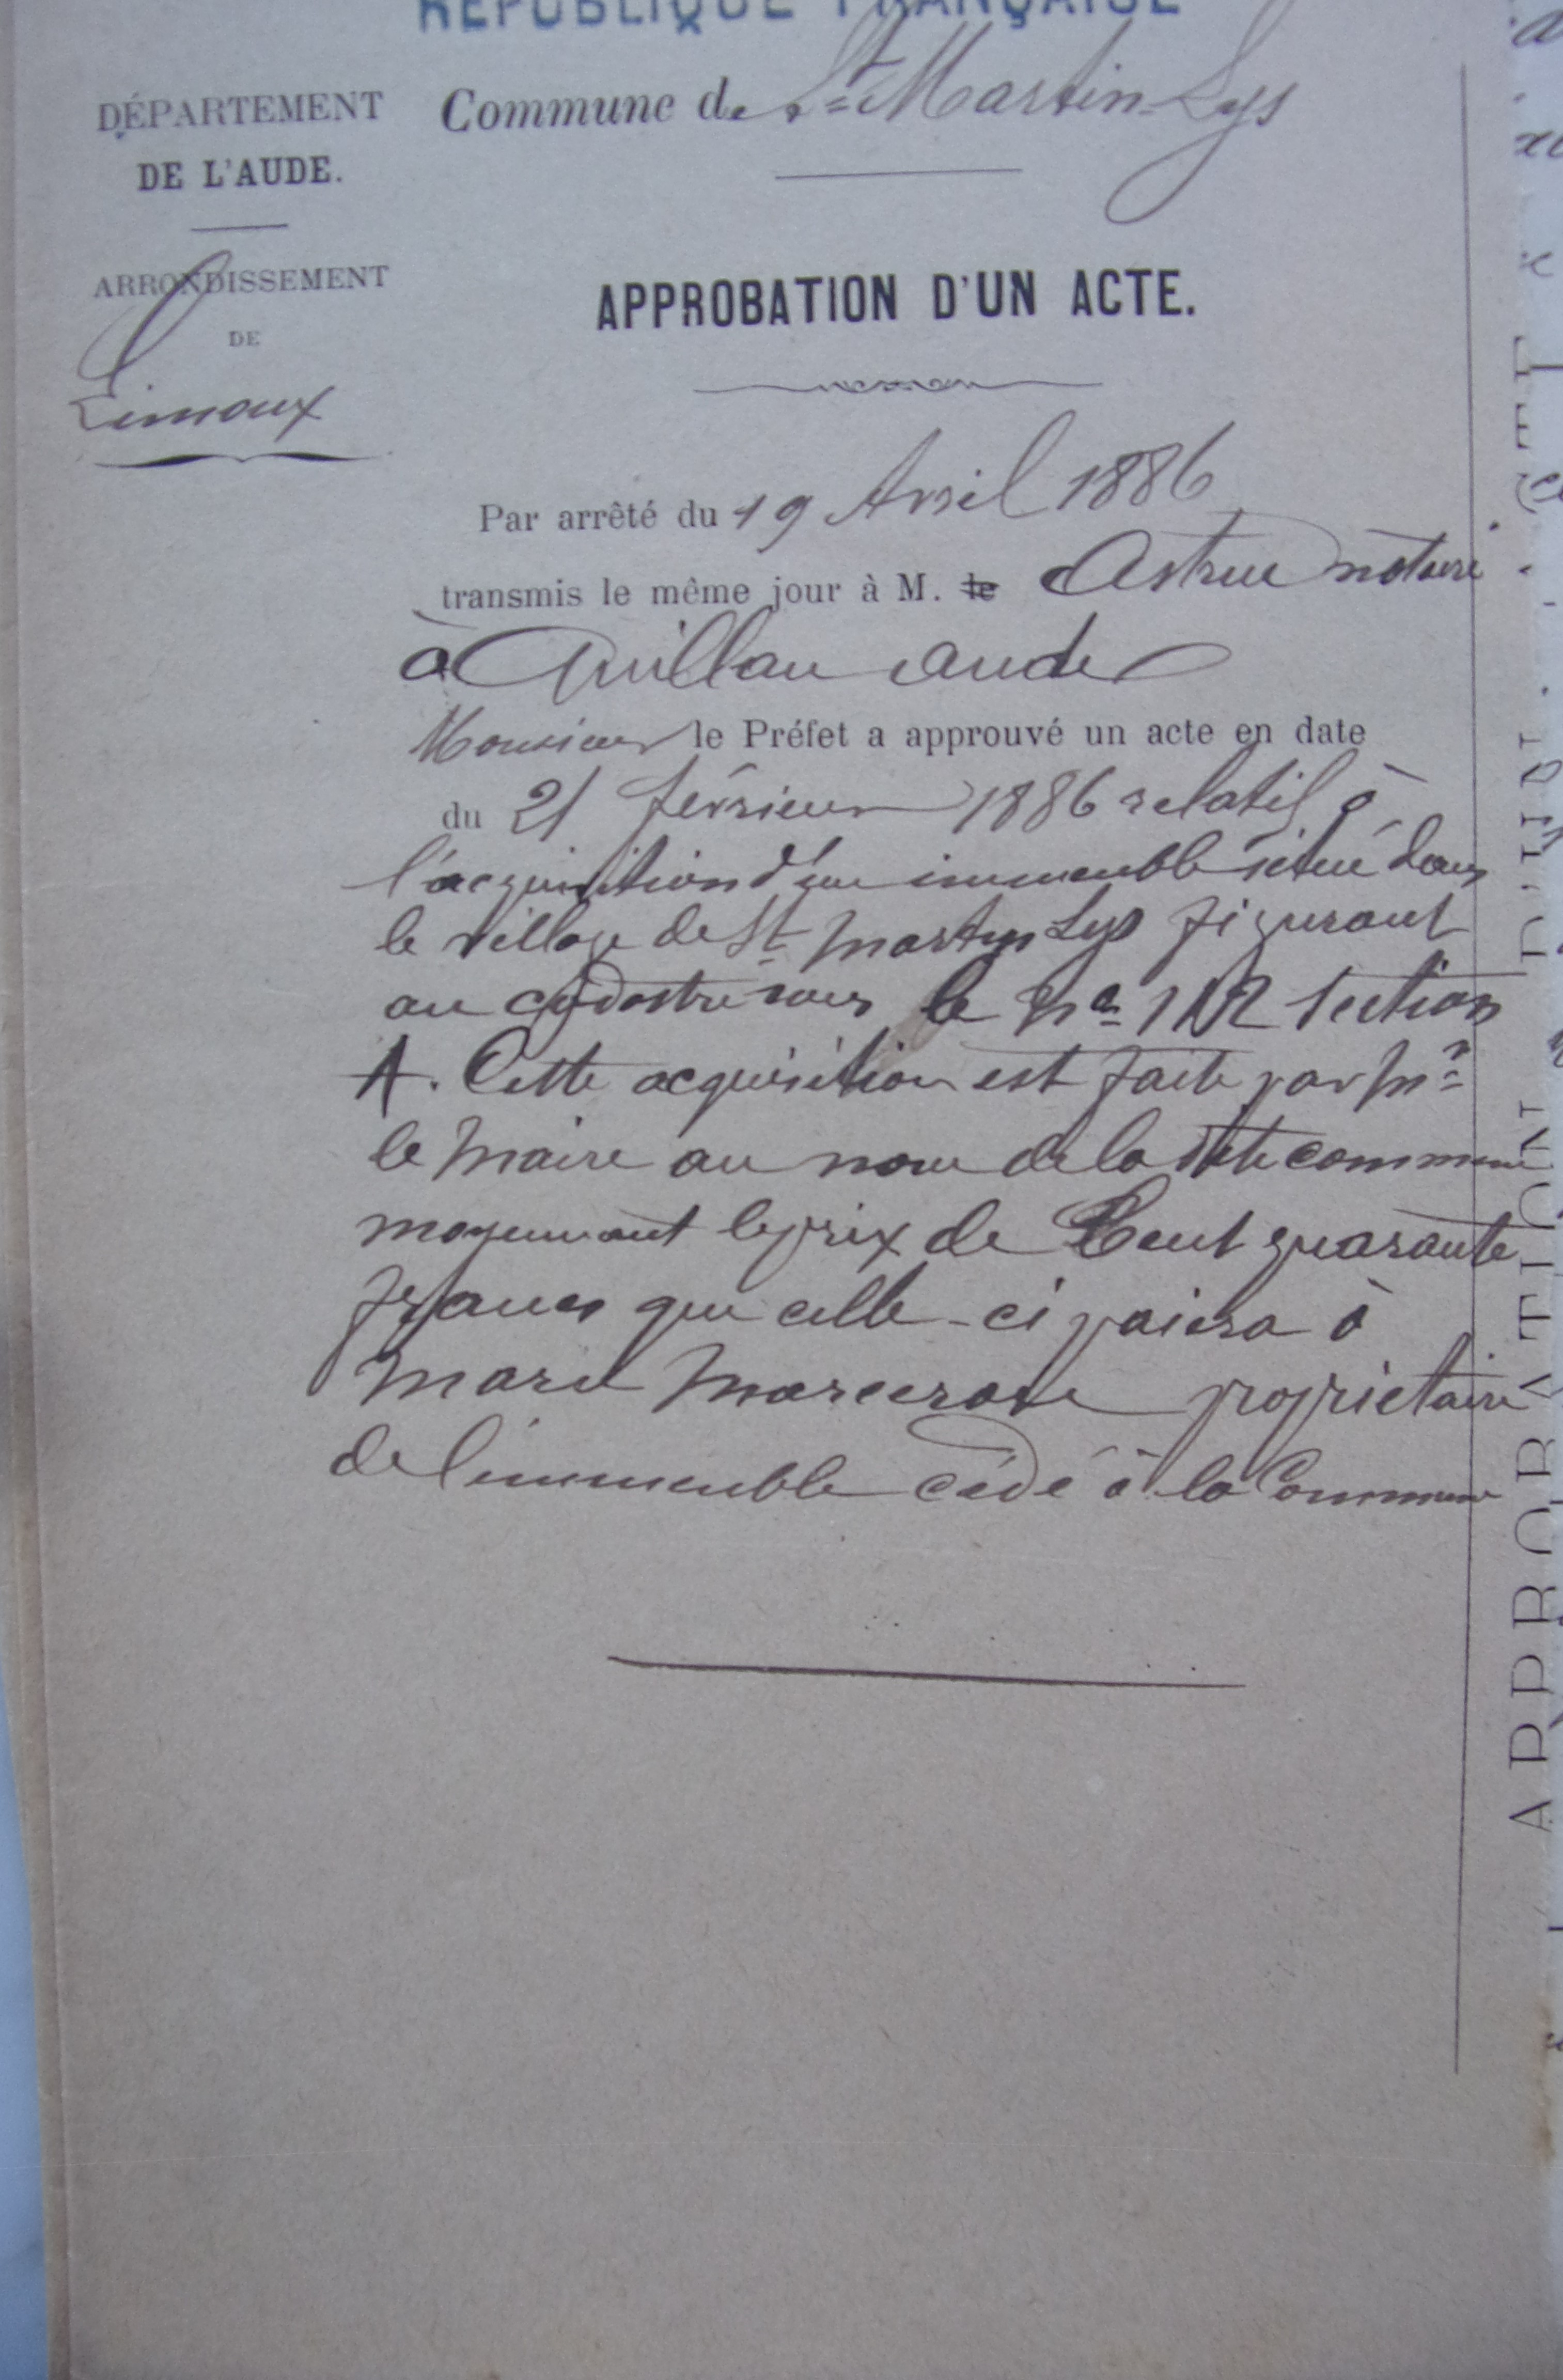 RÉPUBLIQUE FRANÇAISE
DÉPARTEMENT
DE L'AUDE.
Commune de St Martin-Lys
ARRONDISSEMENT
DE
Limoux
APPROBATION D'UN ACTE.
Par arrêté du 19 Avril 1886
transmis le même jour à M. le Astruc notaire
à Quillan Aude
Monsieur le Préfet a approuvé un acte en date
du 21 février 1886 relatif à
l'acquisition d'un immeuble situé dans
le village de St Martin Lys figurant
au cadastre sous le No Section
A. Cette acquisition est faite par Mr
le Maire au nom de la dite commune
moyennant le prix de Cent quarante
francs que celle-ci paiera à
propriétaire
de l'immeuble cédé à la Commune